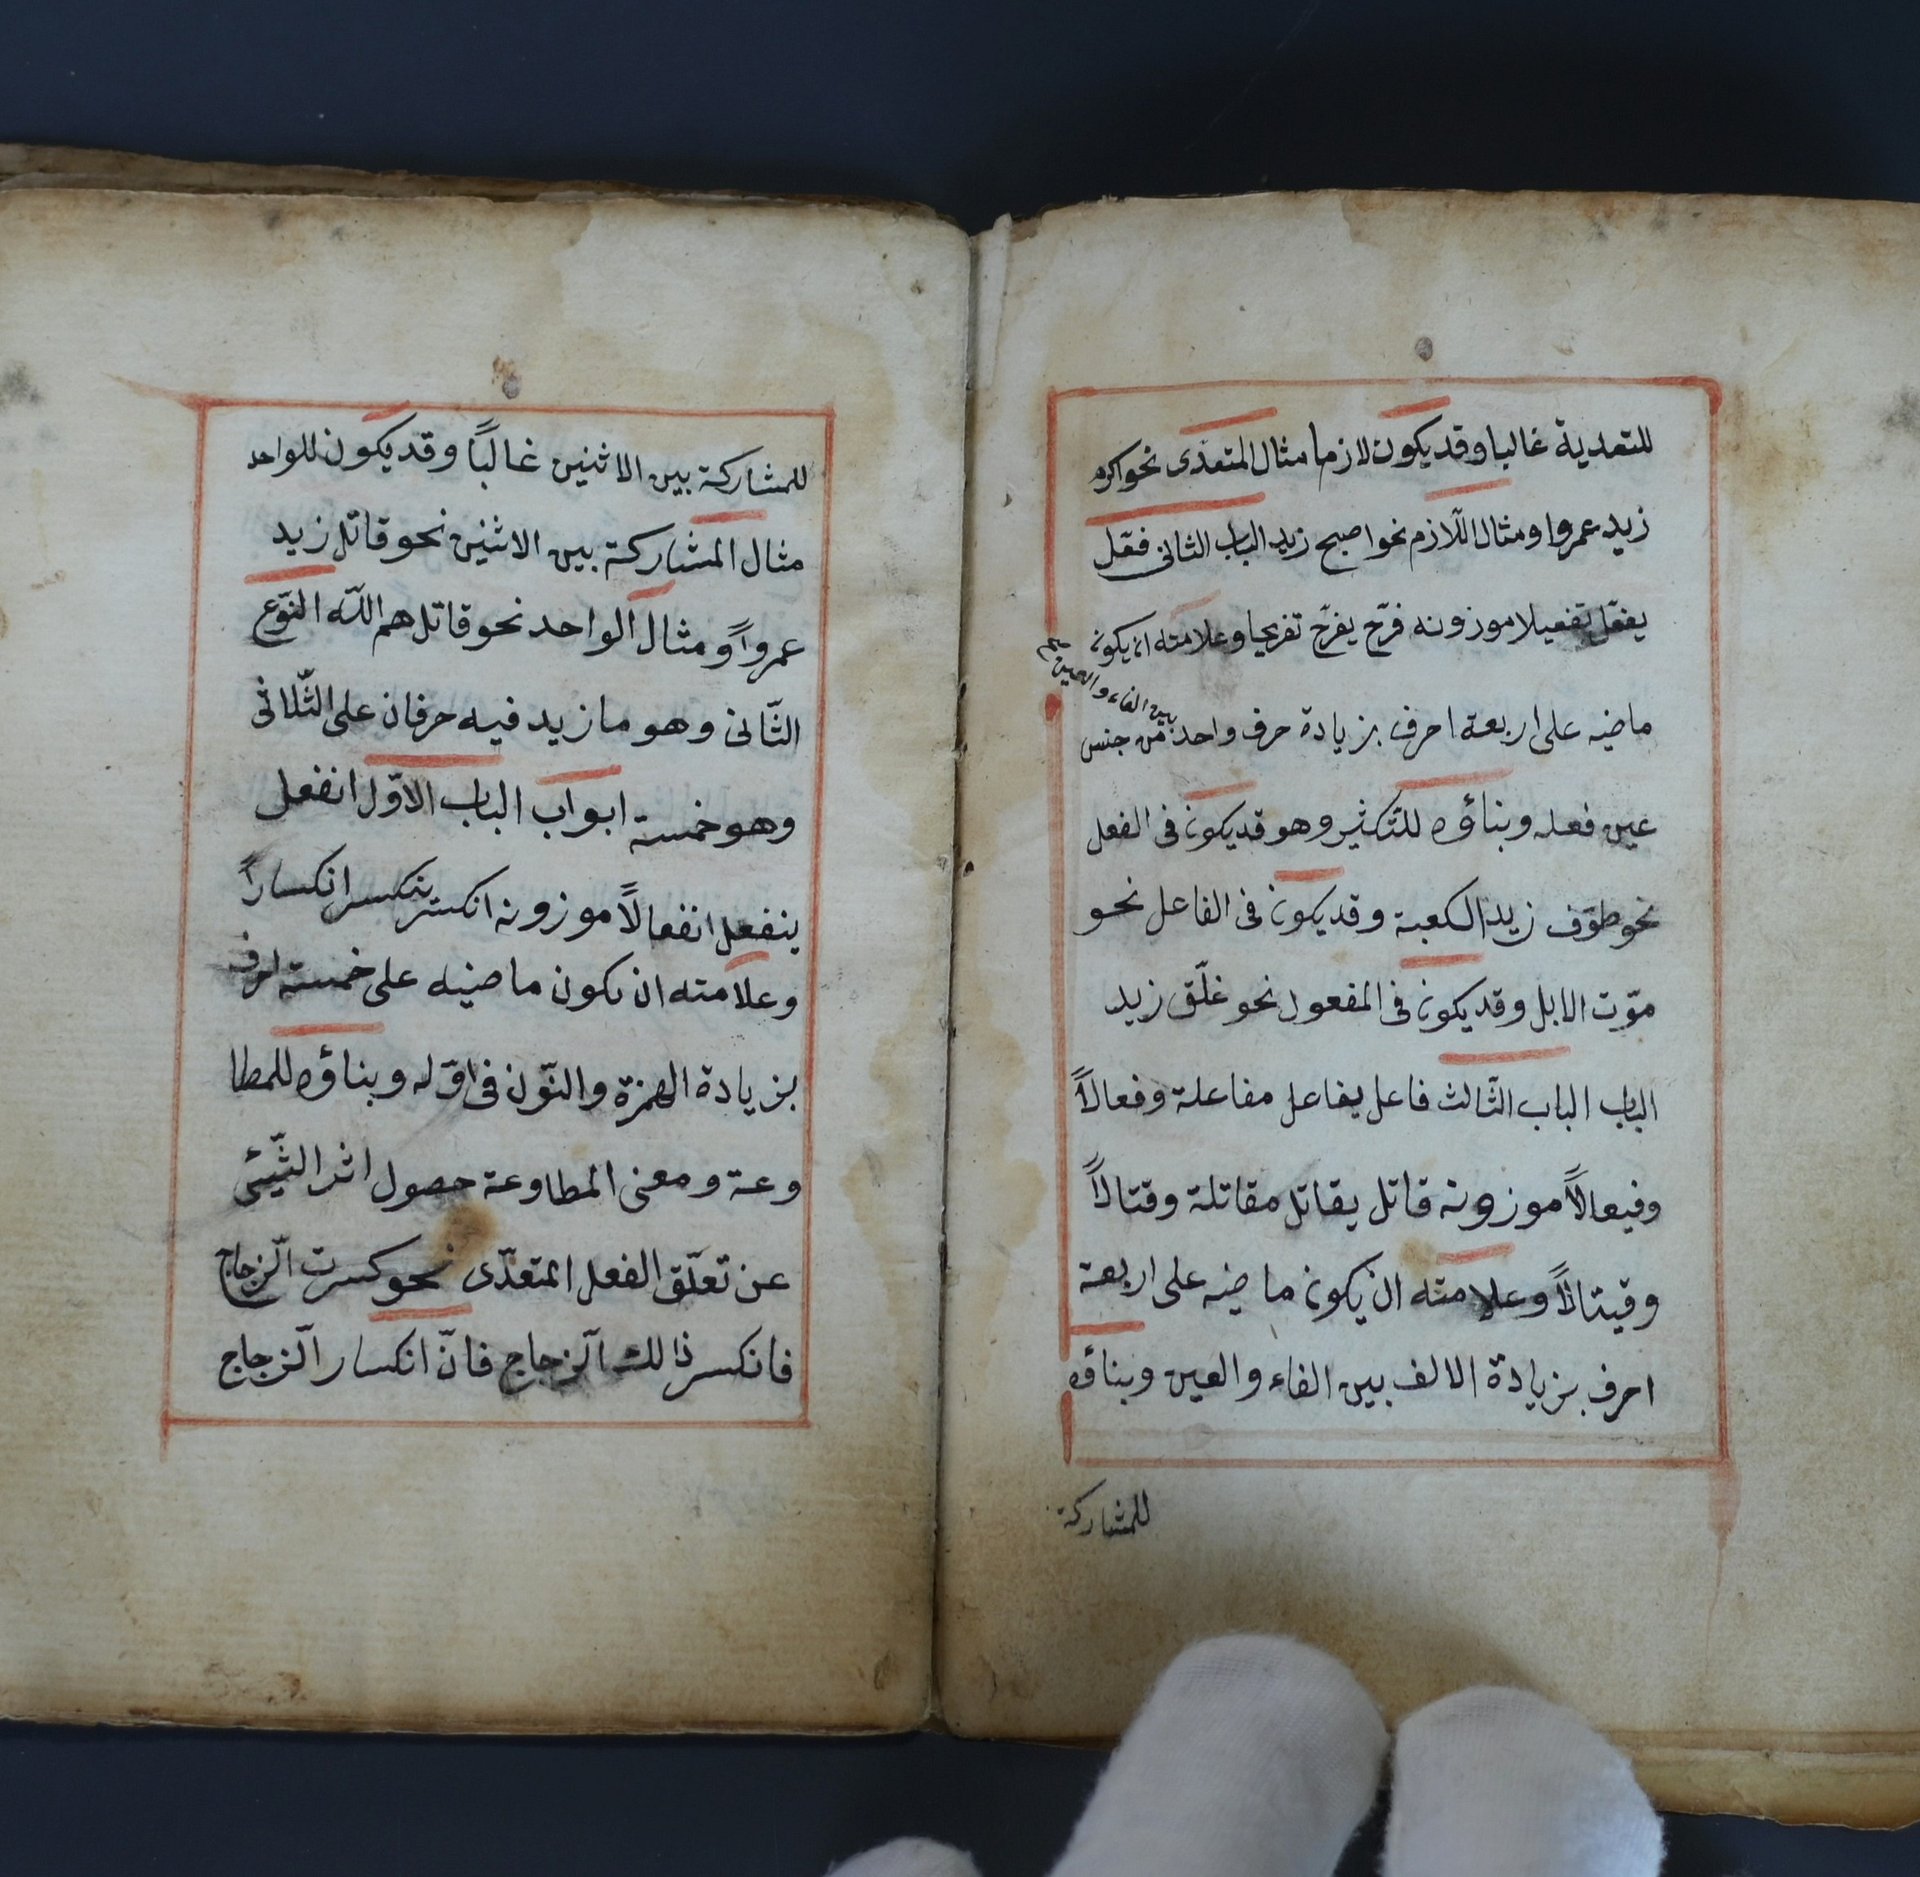 للتعدية غالبا وقد يكون لازما مثال المتعدّى نحو اكرم
زيد عمروا ومثال اللّازم نحو اصبح زيد الباب الثانى فعّل
يفعّل تفعيلا موزونه فرّح يفرّح تفريحا وعلامته ان يكون
ماضيه على اربعة احرف بزيادة حرف واحد من جنس
بين الفاء والعين
عين فعله وبناؤه للتّكثير وهو قد يكون فى الفعل
نحو طوّف زيد الكعبة وقد يكون فى الفاعل نحو
موّت الابل وقد يكون فى المفعول نحو غلّق زيد
الباب الباب الثّالث فاعل يفاعل مفاعلة وفعالاً
وفيعالاً موزونه قاتل يقاتل مقاتلة وقتالاً
وقيتالاً وعلامته ان يكون ماضيه على اربعة
احرف بزيادة الالف بين الفاء والعين وبناؤه
للمشاركة
للمشاركة بين الاثنين غالبًا وقد يكون للواحد
مثال المشاركة بين الاثنين نحو قاتل زيد
عمرواً ومثال الواحد نحو قاتلهم اللّه النّوع
الثّانى وهو ما زيد فيه حرفان على الثّلاثى
وهو خمسة ابواب الباب الاوّل انفعل
ينفعل انفعالاً موزونه انكسر ينكسر انكساراً
وعلامته ان يكون ماضيه على خمسة احرف
بزيادة الهمزة والنّون فى اوّله وبناؤه للمطا
وعة ومعنى المطاوعة حصول اثر الشّيئ
عن تعلّق الفعل المتعدّى نحو كسرت الزّجاج
فانكسر ذالك الزّجاج فانّ انكسار الزّجاج